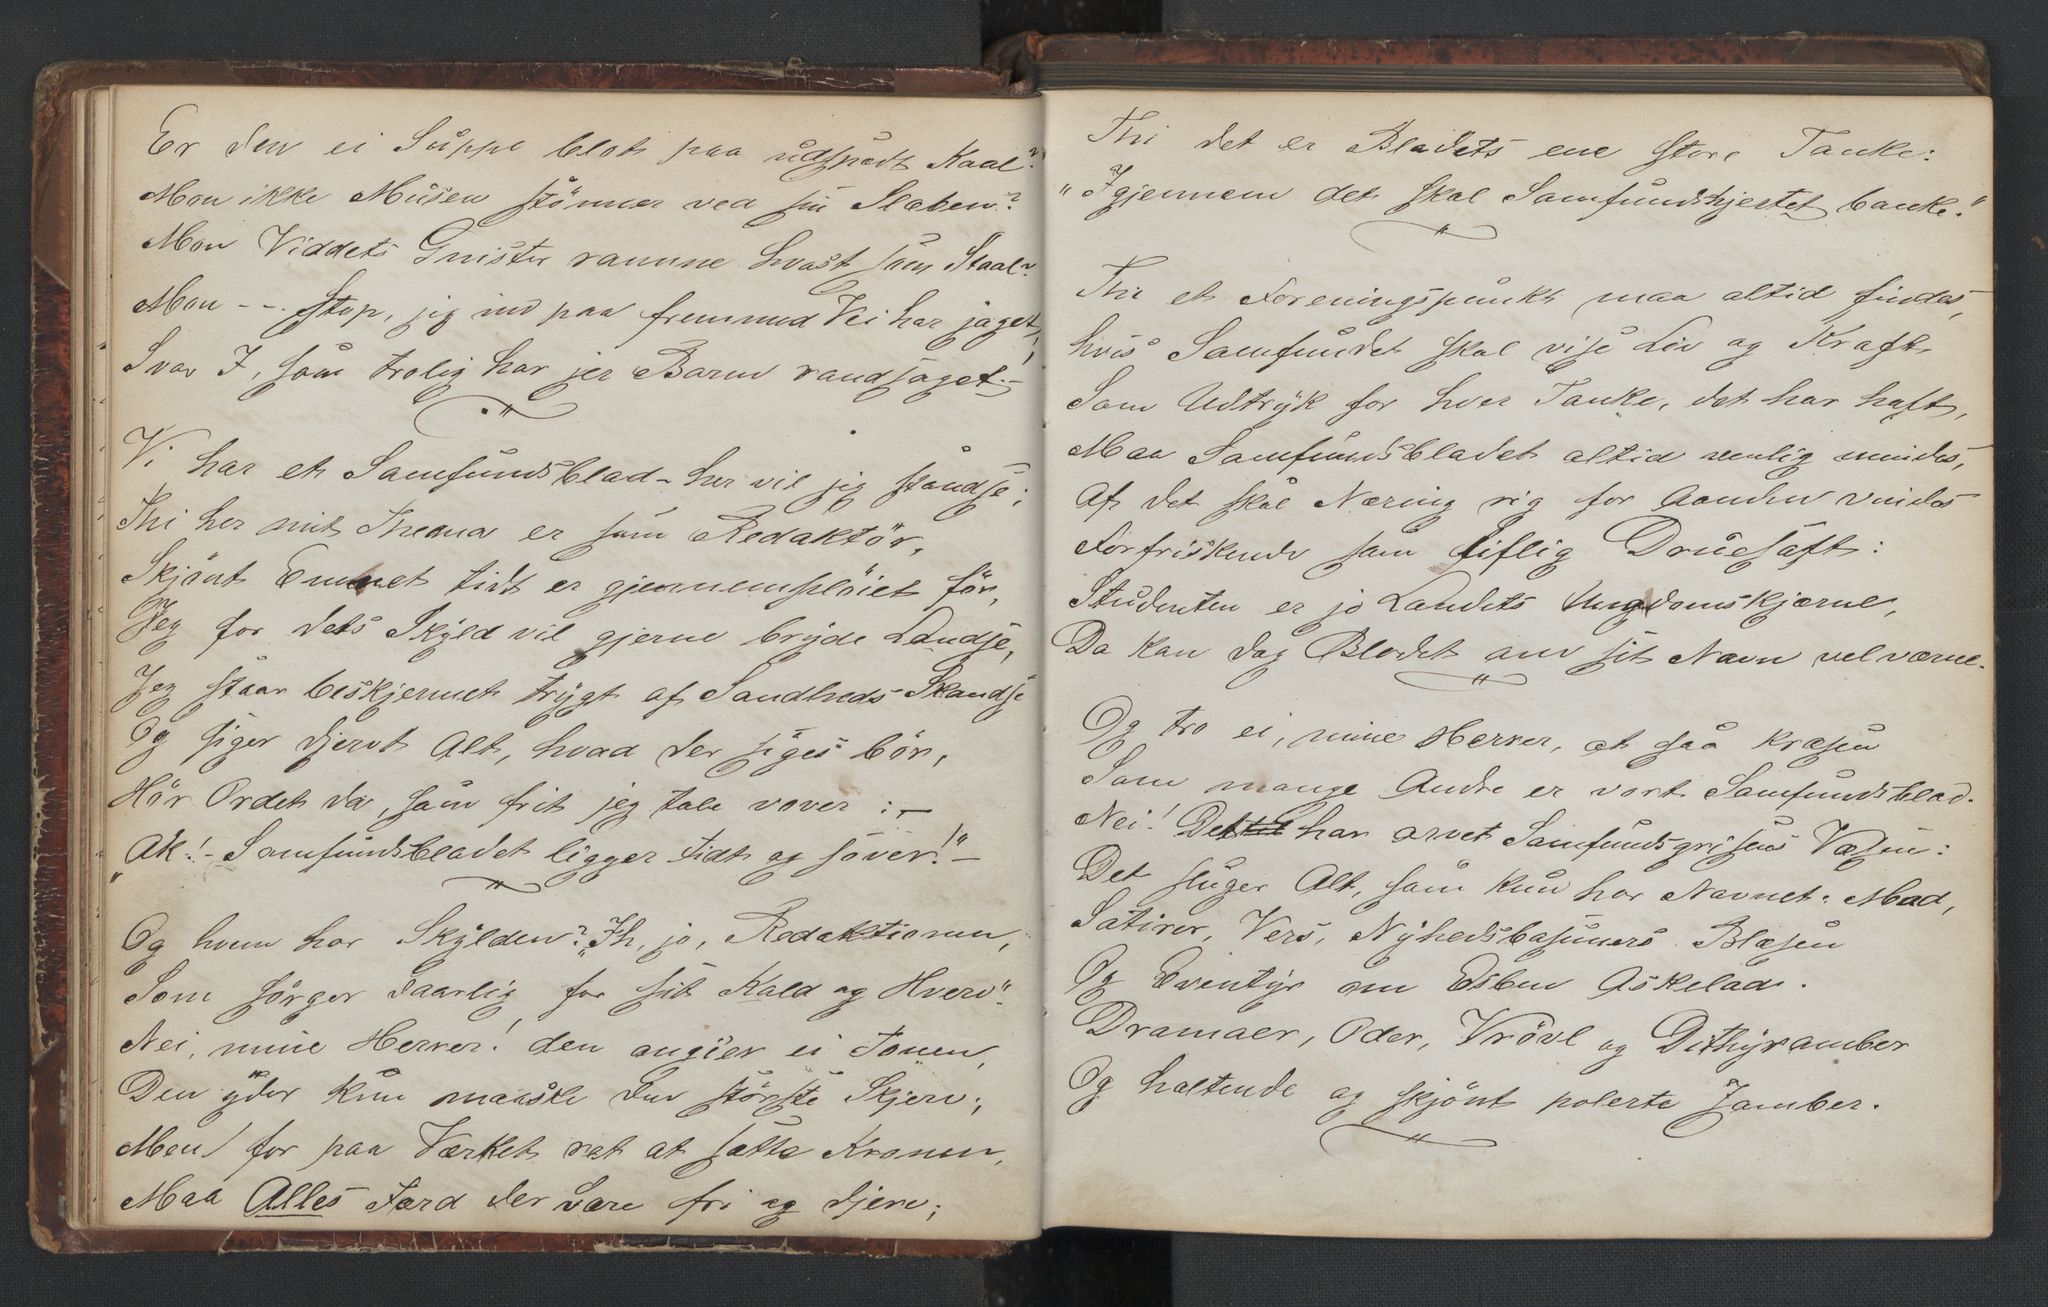 Er den ei Suppe blot paa udspædt Kaal?
Mon ikke Musen stönner ved sin Slæben?
Mon Viddets Gnister ramme hvast som Staal?
Mon -- Stop, jeg ind paa fremmed Vei har jaget,
Svar I, som trolig har jer Barm randsaget! -
Vi har et Samfundsblad - her vil jeg standse;
Thi her mit Thema er som Redaktör,
Skjönt Emnet tidt er gjennempløiet för,
Jeg for dets Skyld vil gjerne bryde Landse,
Jeg staar beskjermet trygt af Sandheds Skandse
Og siger djervt Alt, hvad der siges bör,
Hör Ordet da, som frit jeg tale vover :-
"Ak! - Samfundsbladet ligger tidt og sover!" -
Og hvem har Skylden? "Ih, jo, Redaktionen,
Som sörger daarlig for sit Kald og Hverv".
Nei, mine Herrer! den angier ei Tonen,
Den yder kun maaske den störste Skjerv;
Men for paa Værket ret at sætte Kronen,
Maa Alles Færd der være fri og djerv;
Thi det er Bladets ene store Tanke:
"Igjennem det skal Samfundshjertet banke."
Thi et Foreningspunkt maa altid findes,
hvis Samfundet skal vise Liv og Kraft
Som Udtryk for hver Tanke, det har haft,
Maa Samfundsbladet altid venlig mindes,
Af det skal Næring rig for Aanden vindes
Forfriskende som liflig Druesaft:
Studenten er jo Landets Ungdomskjærne,
Da kan dog Bladet om sit Navn vel værne.
Og tro ei, mine Herrer, at saa kræsen
Som mange Andre er vort Samfundsblad.
Nei! Det har arvet Samfundsgrisens Væsen:
Det sluger Alt, som kun har Navnet: Mad,
Satirer, Vers, Nyhedsbasuners Blæsen
Og Eventyr om Esben Askelad.
Dramaer, Oder, Vrövl og Dithyramber
Og haltende og skjönt polerte Jamber.